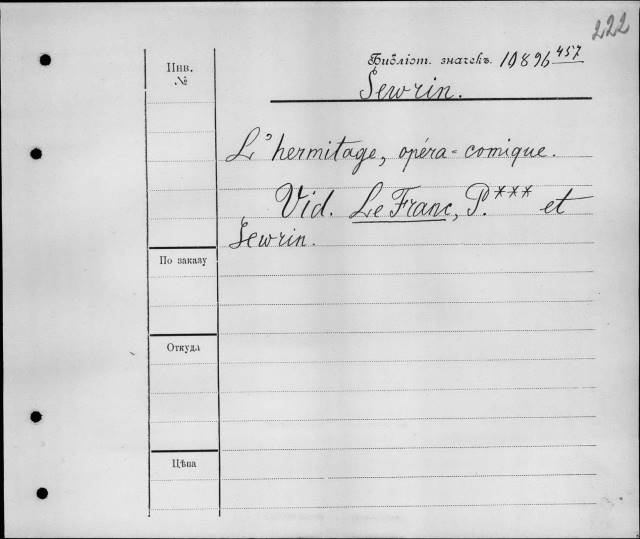 222
Инв.
№
Библіот. значекъ. 10896 457
Sewrin.
L'hermitage, opéra-comique.
Vid. Le Franc, P.*** et
Sewrin.
По заказу
Откуда
Цѣна